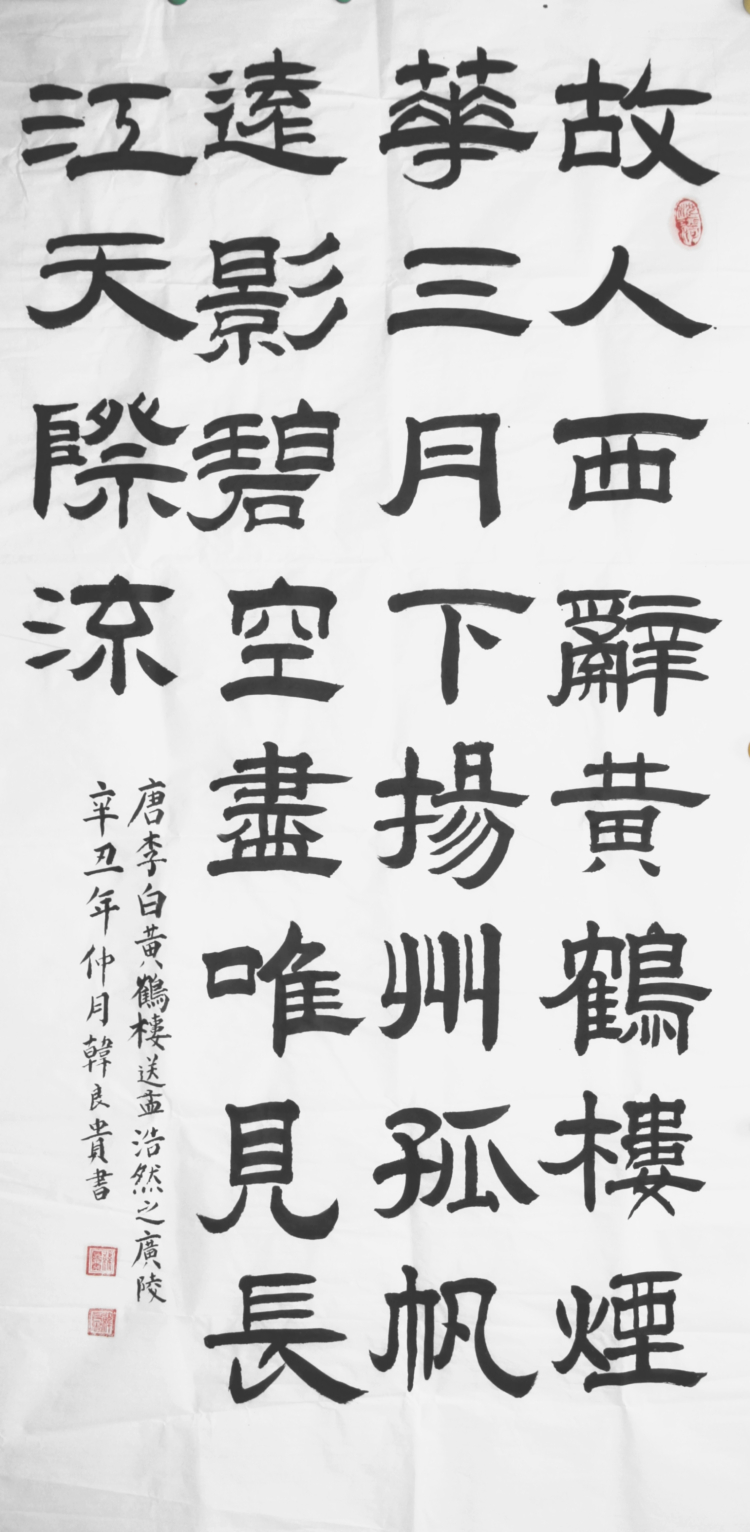 故人西辭黄鶴樓煙
華三月下揚州孤帆
遠影碧空盡唯見長
江天際流
唐李白黄鶴樓送孟浩然之廣陵
辛丑年仲月韓良貴書